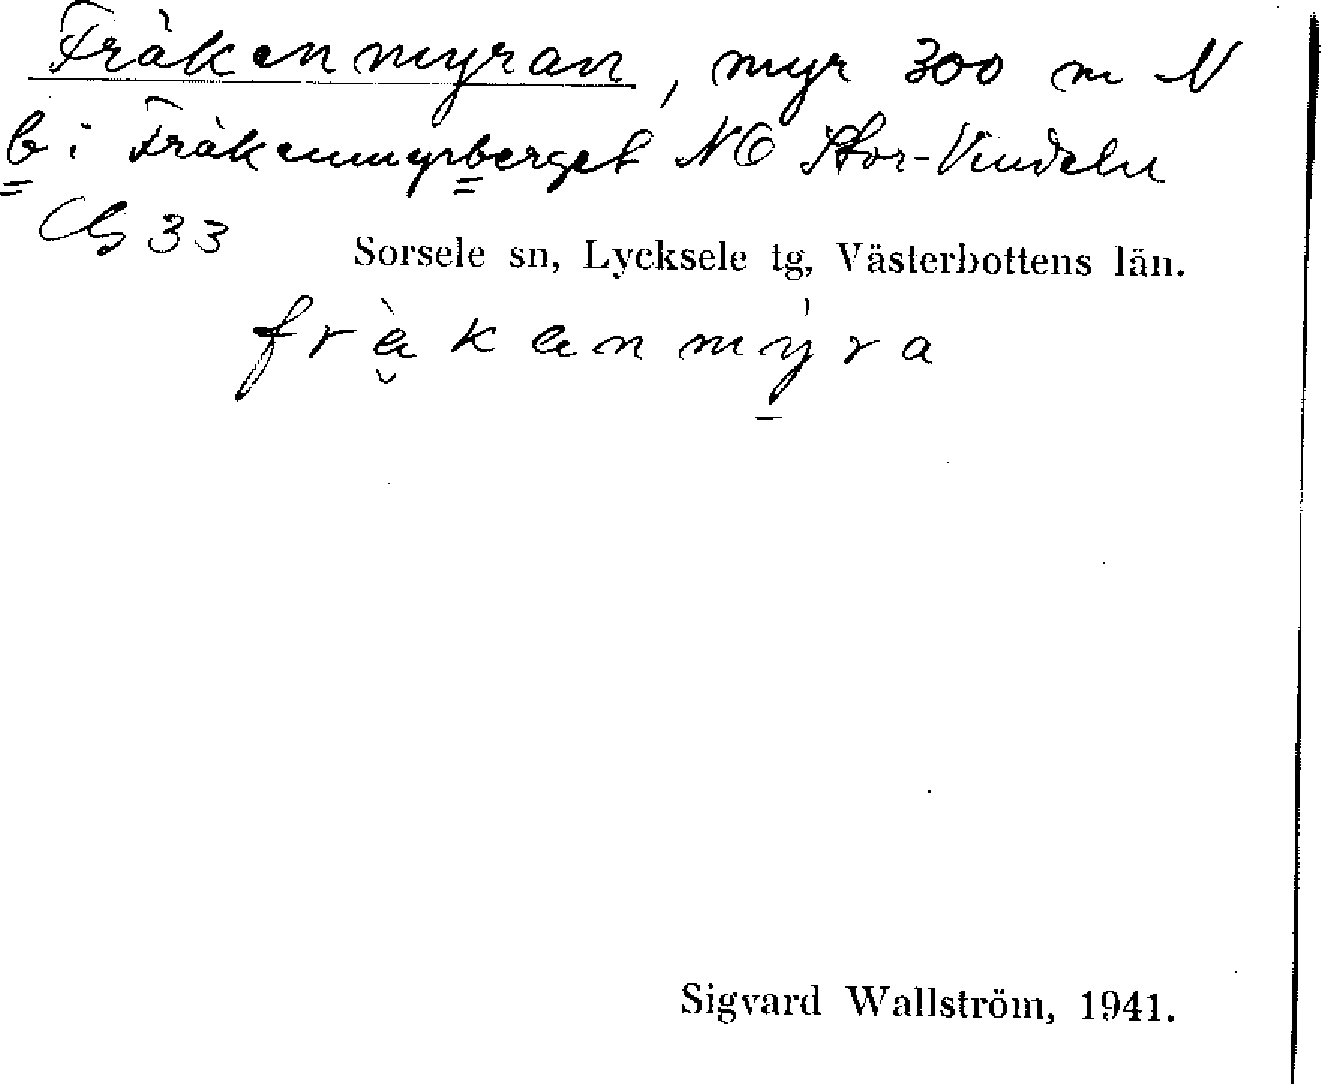 Fräkenmyran, myr 300 m N
b i Fräkenmyrberget NO Stor-Vindeln
Cb 33
Sorsele sn, Lycksele tg, Västerbottens län.
frǟkenmyra
Sigvard Wallström, 1941.